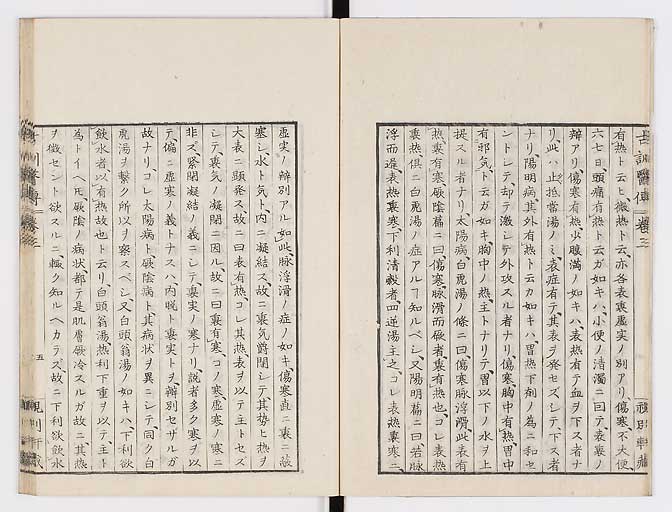 古訓醫傳 卷三
有熱ト云ヒ微熱ト云亦各表裏虛實ノ別アリ傷寒不大便
六七日頭痛有熱ト云ガ如キハ小便ノ清濁ニ因テ表裏ノ
辨アリ傷寒有熱少腹滿ノ如キハ表熱有テ血ヲ下ス者ナ
リ此ハ止抵當湯ノミ表症有テ其表ヲ發セズシテ下ス者
ナリ陽明病其外有熱ト云カ如キハ胃熱下劑ノ為ニ和セ
ントシテ却テ激シテ外攻スル者ナリ傷寒胸中有熱胃中
有邪気ト云ガ如キ胸中ノ熱主トナリテ胃以下ノ水ヲ上
提スル者ナリ太陽病白虎湯ノ條ニ曰傷寒脉浮滑此表有
熱裏有寒厥陰篇ニ曰傷寒脉滑而厥者裏有熱也コレ表熱
裏熱俱ニ白虎湯ノ症アルヿ知ルベシ又陽明篇ニ曰若脉
浮而遲表熱裏寒下利清穀者四逆湯主之コレ表熱裏寒ニ
虛実ノ辨別アル如此脉浮滑ノ症ノ如キ傷寒直ニ裏ニ
塞シ水ト気ト内ニ凝結ス故ニ裏気欝閉シテ其勢ヒ熱ヲ
大表ニ顯発ス故ニ曰表有熱コレ其熱表ヲ以テ主トセズ
シテ裏気ノ凝閉ニ因ル故ニ曰裏有寒コノ寒虛寒ノ寒ニ
非ズ緊閉凝結ノ義ニシテ裏実ノ寒ナリ説者多ク寒ヲ以
テ偏ニ虛寒ノ義トナスハ内脱ト裏実トヲ辨別セザルガ
故ナリコレ太陽病ト厥陰病ト其病状ヲ異ニシテ同ク白
虎湯ヲ繫ク所以ヲ察スベシ又白頭翁湯ノ如キハ下利欲
飲水者以有熱故也ト云リ白頭翁湯熱利下重ヲ以テ主ト
為トイヘ厥陰ノ病状都テ是肌膚厥冷スルガ故ニ其熱
ヲ徴セント欲スルニ輒ク知ルベカラズ故ニ下利欲飲水
五